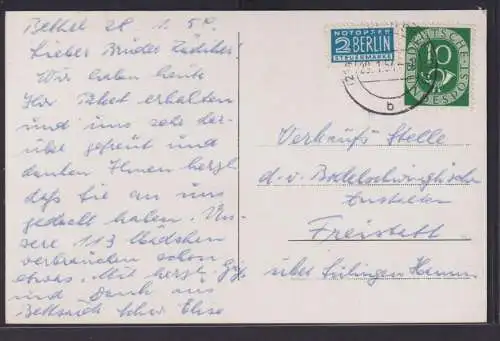 Bethel 28. 1. 54.
Lieber Brüder
Wir haben heute
Ihr Paket erhalten
und uns sehr dar-
über gefreut und
danken Ihnen herzl.
daß Sie an uns
gedacht haben. Un-
sere 113 Mädchen
verbrauchen schon
etwas. Mit herzl.
und Dank aus
Schw. Elise
NOTOPFER
2 BERLIN
STEUERMARKE
DEUTSCHE
BUNDESPOST
10
b
Verkaufs Stelle
d. v. Bodelschwinghschen
Anstalten
Freistatt
über Sulingen Hann.